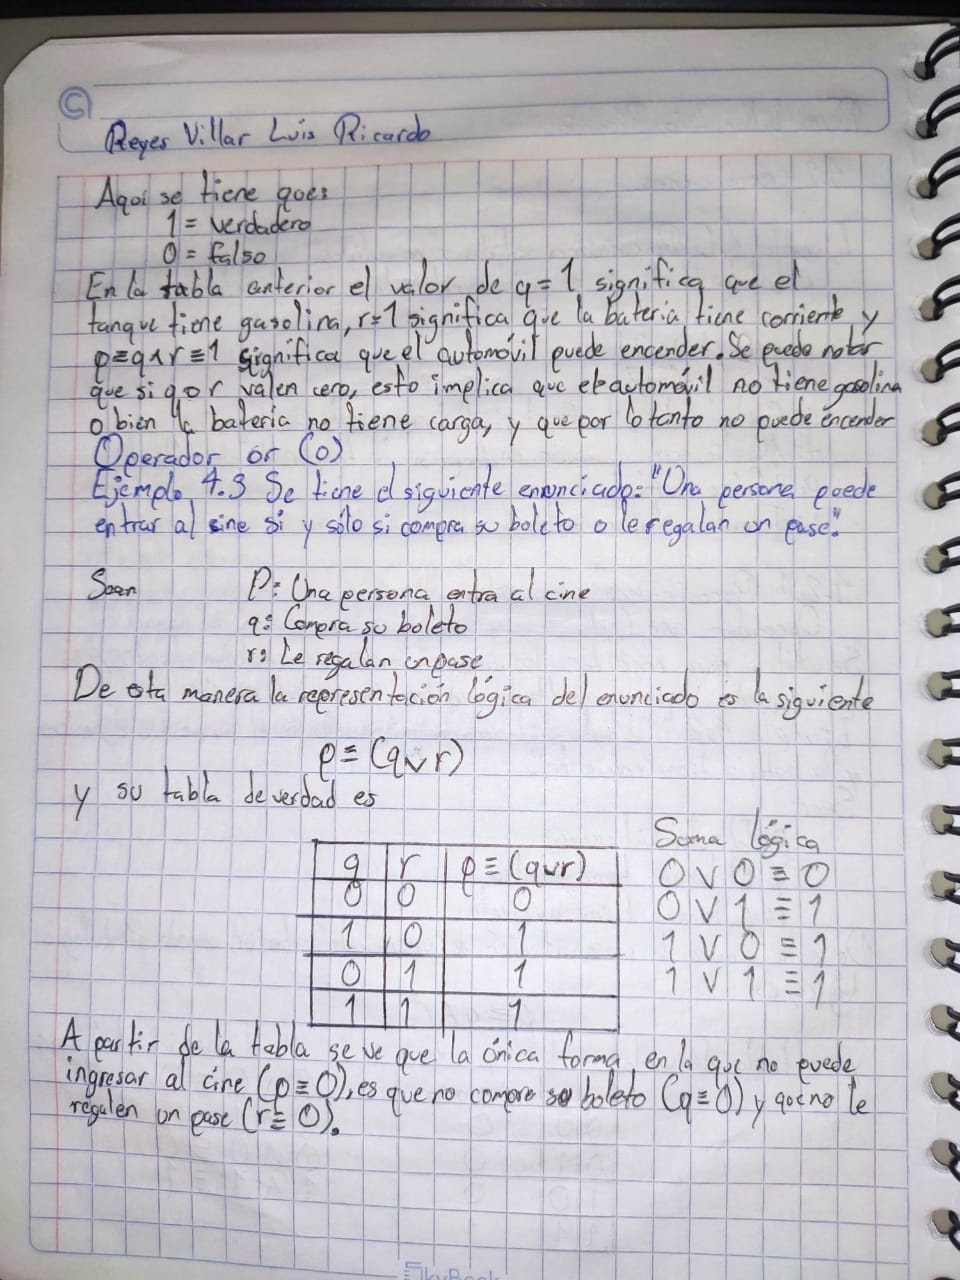 C
Reyes Villar Luis Ricardo
Aqui se tiene que:
1 = verdadero
0 = falso
En la tabla anterior el valor de q = 1 significa que el
tanque tiene gasolina, r=1 significa que la bateria tiene corriente y
p≡q∧r≡1 significa que el automóvil puede encender. Se puede notar
que si q o r valen cero, esto implica que el automóvil no tiene gasolina
o bien la batería no tiene carga, y que por lo tanto no puede encender
Operador or (o)
Ejemplo 4.3 Se tiene el siguiente enunciado: "Una persona puede
entrar al cine si y sólo si compra su boleto o le regalan un pase".
Sean P: Una persona entra al cine
q: Compra su boleto
r: Le regalan un pase
De esta manera la representación lógica del enunciado es la siguiente
p ≡ (q∨r)
y su tabla de verdad es
Suma lógica
q r p ≡ (q∨r) 0 ∨ 0 ≡ 0
0 0 0 0 ∨ 1 ≡ 1
1 0 1 1 ∨ 0 ≡ 1
0 1 1 1 ∨ 1 ≡ 1
1 1 1
A partir de la tabla se ve que la única forma en la que no puede
ingresar al cine (p≡0), es que no compre su boleto (q≡0) y que no le
regalen un pase (r≡0).
SkyBook